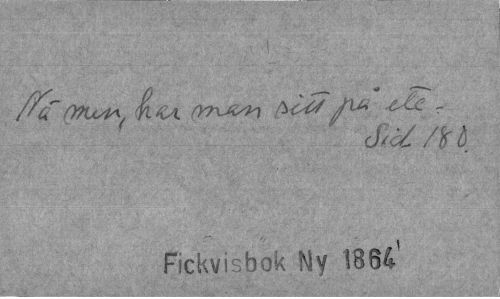 Nå men, har man sitt på etc.
Sid 180.
Fickvisbok Ny 1864'